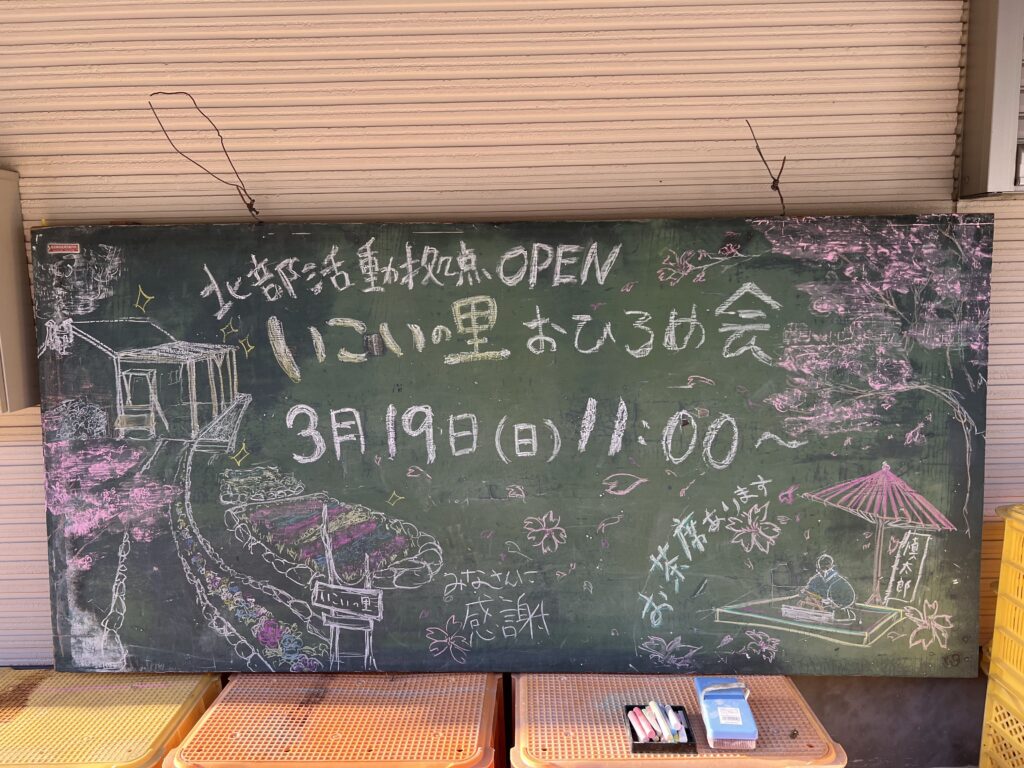 北部活動拠点OPEN
いこいの里おひろめ会
3月19日(日)11:00〜
お茶席あります
みなさんに
感謝
いこいの里
太郎